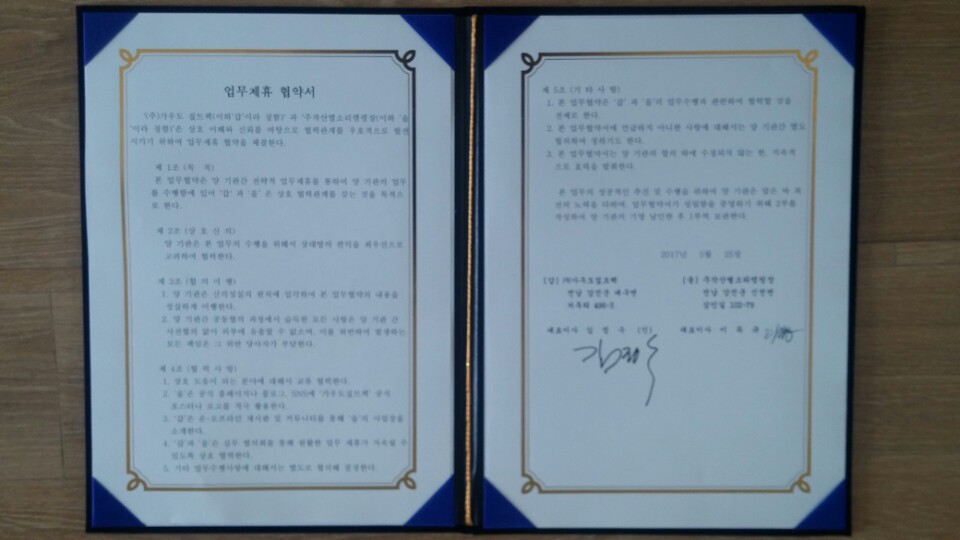 업무제휴 협약서
'(주)가우도 짚트랙(이하'갑'이라 칭함)' 과 '주작산명소리캠핑장(이하 '을
'이라 칭함)'은 상호 이해와 신뢰를 바탕으로 협력관계를 우호적으로 발전
시키기 위하여 업무제휴 협약을 체결한다.
제 1조 (목 적)
본 업무협약은 양 기관간 전략적 업무제휴를 통하여 양 기관의 업무
를 수행함에 있어 '갑' 과 '을' 은 상호 협력관계를 갖는 것을 목적으
로 한다.
제 2조 (상 호 신 의)
양 기관은 본 업무의 수행을 위해서 상대방의 편익을 최우선으로
고려하여 협력한다.
제 3조 (합 의 이 행)
1. 양 기관은 신의성실의 원칙에 입각하여 본 업무협약의 내용을
성실하게 이행한다.
2. 양 기관간 공동협의 과정에서 습득한 모든 사항은 양 기관 간
사전협의 없이 외부에 유출할 수 없으며, 이를 위반하여 발생하는
모든 책임은 그 위반 당사자가 부담한다.
제 4조 (협 력 사 항)
1. 상호 도움이 되는 분야에 대해서 교류 협력한다.
2. '을'은 공식 홈페이지나 블로그, SNS에 '가우도짚트랙' 공식
포스터나 로고를 적극 활용한다.
3. '갑'은 온·오프라인 게시판 및 커뮤니티를 통해 '을'의 사업장을
소개한다.
4. '갑'과 '을'은 실무 협의회를 통해 원활한 업무 제휴가 지속될 수
있도록 상호 협력한다.
5. 기타 업무수행사항에 대해서는 별도로 협의해 결정한다.
제 5조 (기 타 사 항)
1. 본 업무협약은 '갑' 과 '을'의 업무수행과 관련하여 협력할 것을
전제로 한다.
2. 본 업무협약서에 언급하지 아니한 사항에 대해서는 양 기관간 별도
협의하여 정하기도 한다.
3. 본 업무협약서는 양 기관의 합의 하에 수정되지 않는 한, 지속적
으로 효력을 발휘한다.
본 업무의 성공적인 추진 및 수행을 위하여 양 기관은 맡은 바 최
선의 노력을 다하며, 업무협약서가 성립함을 증명하기 위해 2부를
작성하여 양 기관의 기명 날인한 후 1부씩 보관한다.
2017년 5월 25일
[갑] ㈜가우도짚트랙
전남 강진군 대구면
저두리 400-3
대표이사 김 영 우 (인)
[을] 주작산명소리캠핑장
전남 강진군 신전면
대표이사 이